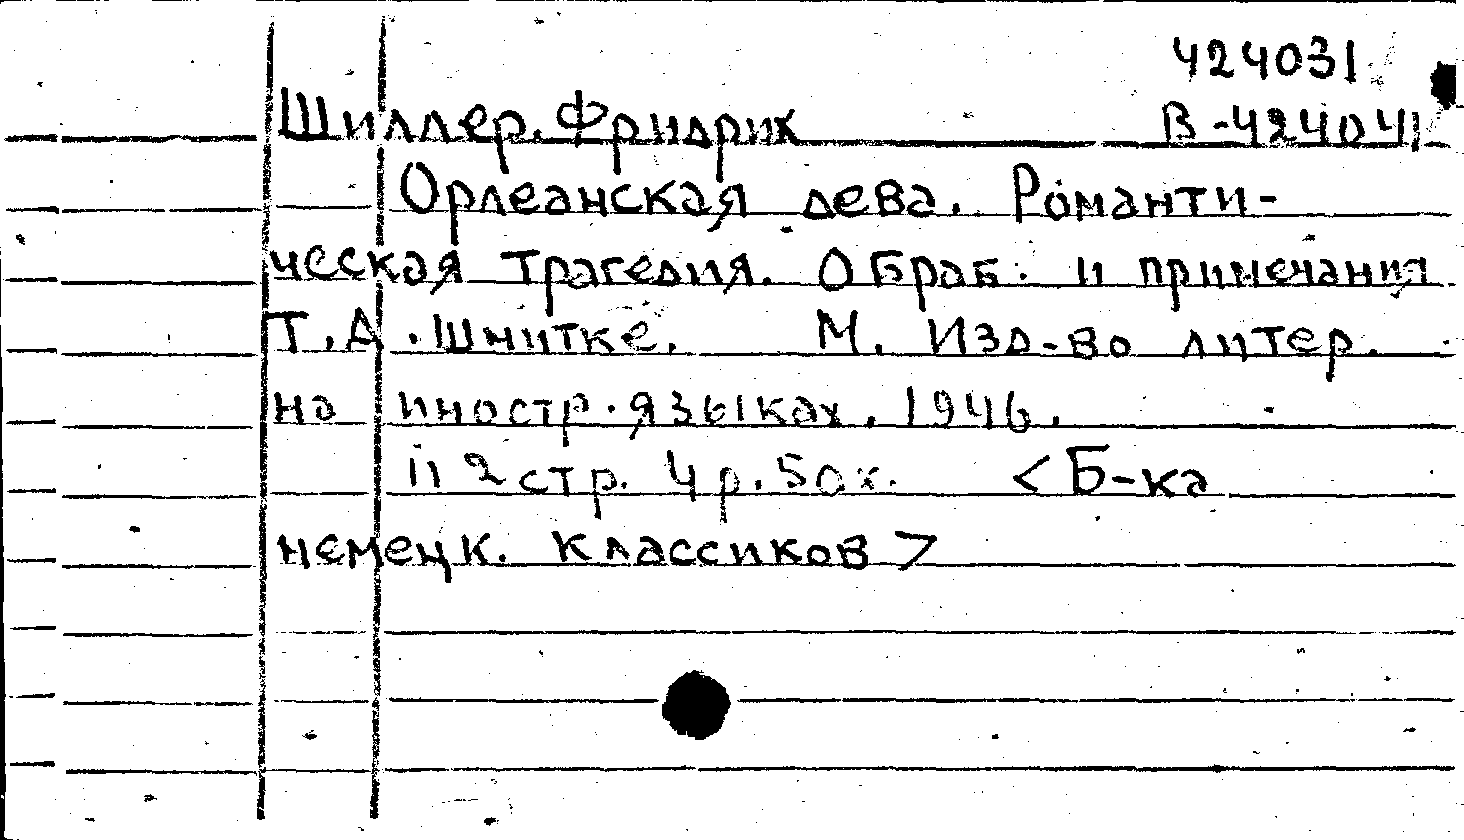 424031
Шиллер. Фридрих В-424041
Орлеанская дева. Романти-
ческая трагедия. Обраб. и примечания
Т.А. Шмитке. М. Изд-во литер.
на иностр. языках. 1946.
112 стр. 4р. 50к. <Б-ка
немецк. классиков>